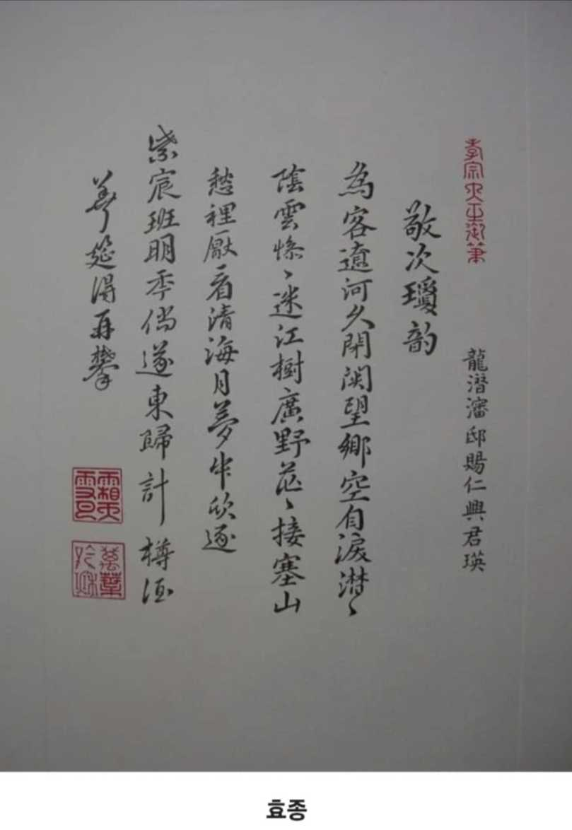 孝宗大王御筆
龍潛瀋邸賜仁興君瑛
敬次瓊韵
為客遼河久閉関望鄉空自淚潸〻
陰雲慘〻迷江樹廣野茫〻接塞山
愁裡厭看清海月夢中欣逐
紫宸班明季倘遂東歸計樽酒
華筵得再攀
효종